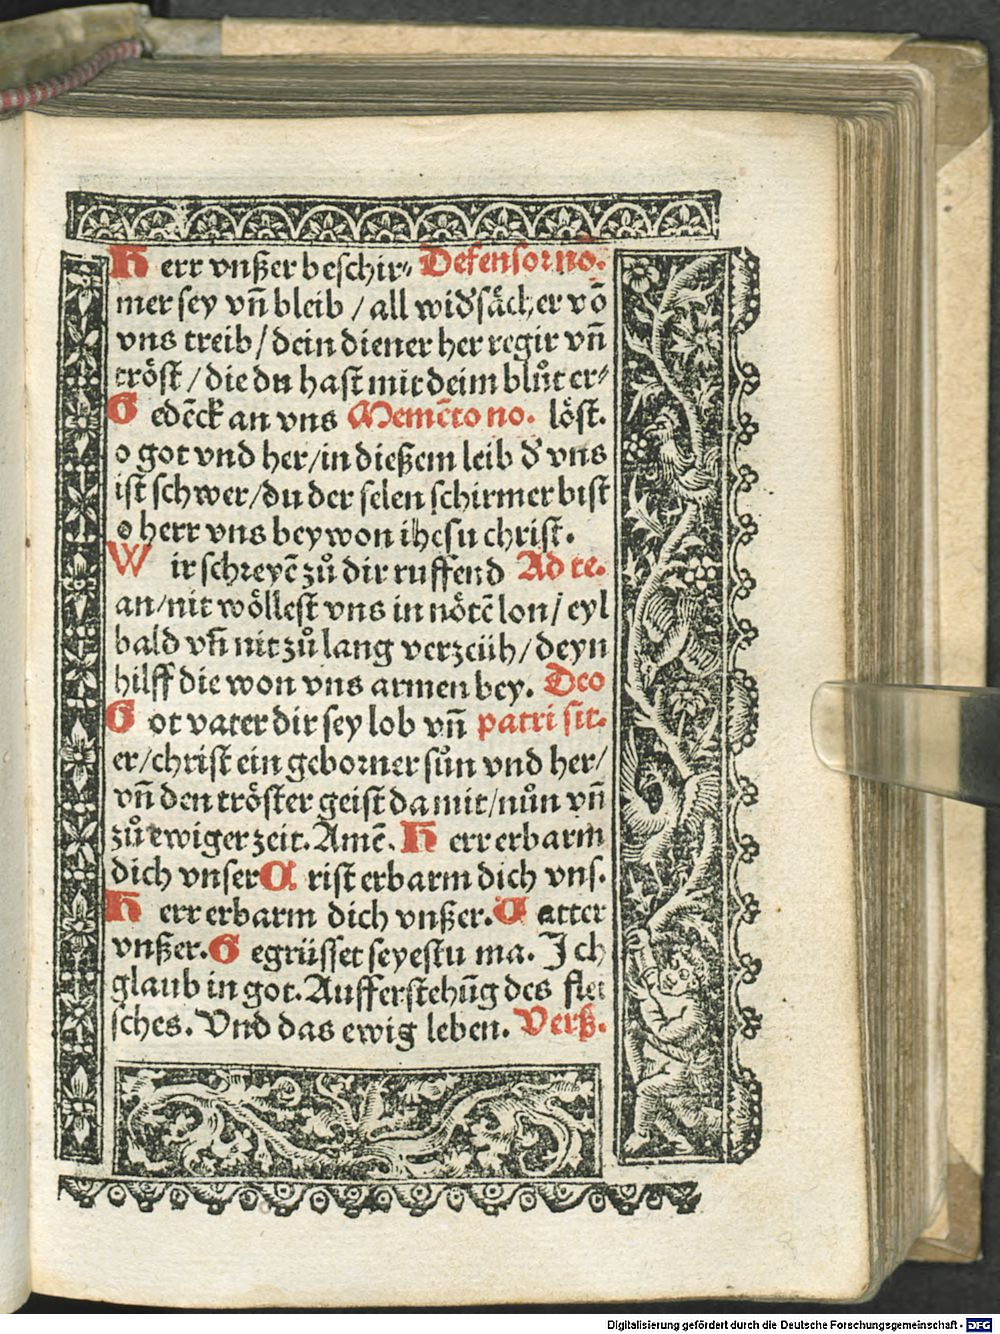 Herr vnßer beschir⸗ Defensor no.
mer sey vn̄ bleib / all wid̕såcher vō
vns treib / dein diener her regir vn̄
tröst / die du hast mit deim blůt er⸗
Gedēck an vns Memēto no. löst.
o got vnd her / in dießem leib d̕ vns
ist schwer / du der selen schirmer bist
o herr vns beywon ihesu christ.
Wir schreyē zů dir ruffend Ad te.
an / nit wöllest vns in nötē lon / eyl
bald vn̄ nit zů lang verzeüh / deyn
hilff die won vns armen bey. Deo
Got vater dir sey lob vn̄ patri sit.
er / christ ein geborner sůn vnd her /
vn̄ den tröster geist damit / nůn vn̄
zů ewiger zeit. Amē. Herr erbarm
dich vnser Crist erbarm dich vns.
Herr erbarm dich vnßer. Vatter
vnßer. Gegrüsset seyestu ma. Ich
glaub in got. Aufferstehūg des flei
sches. Vnd das ewig leben. Verß.
Digitalisierung gefördert durch die Deutsche Forschungsgemeinschaft - DFG